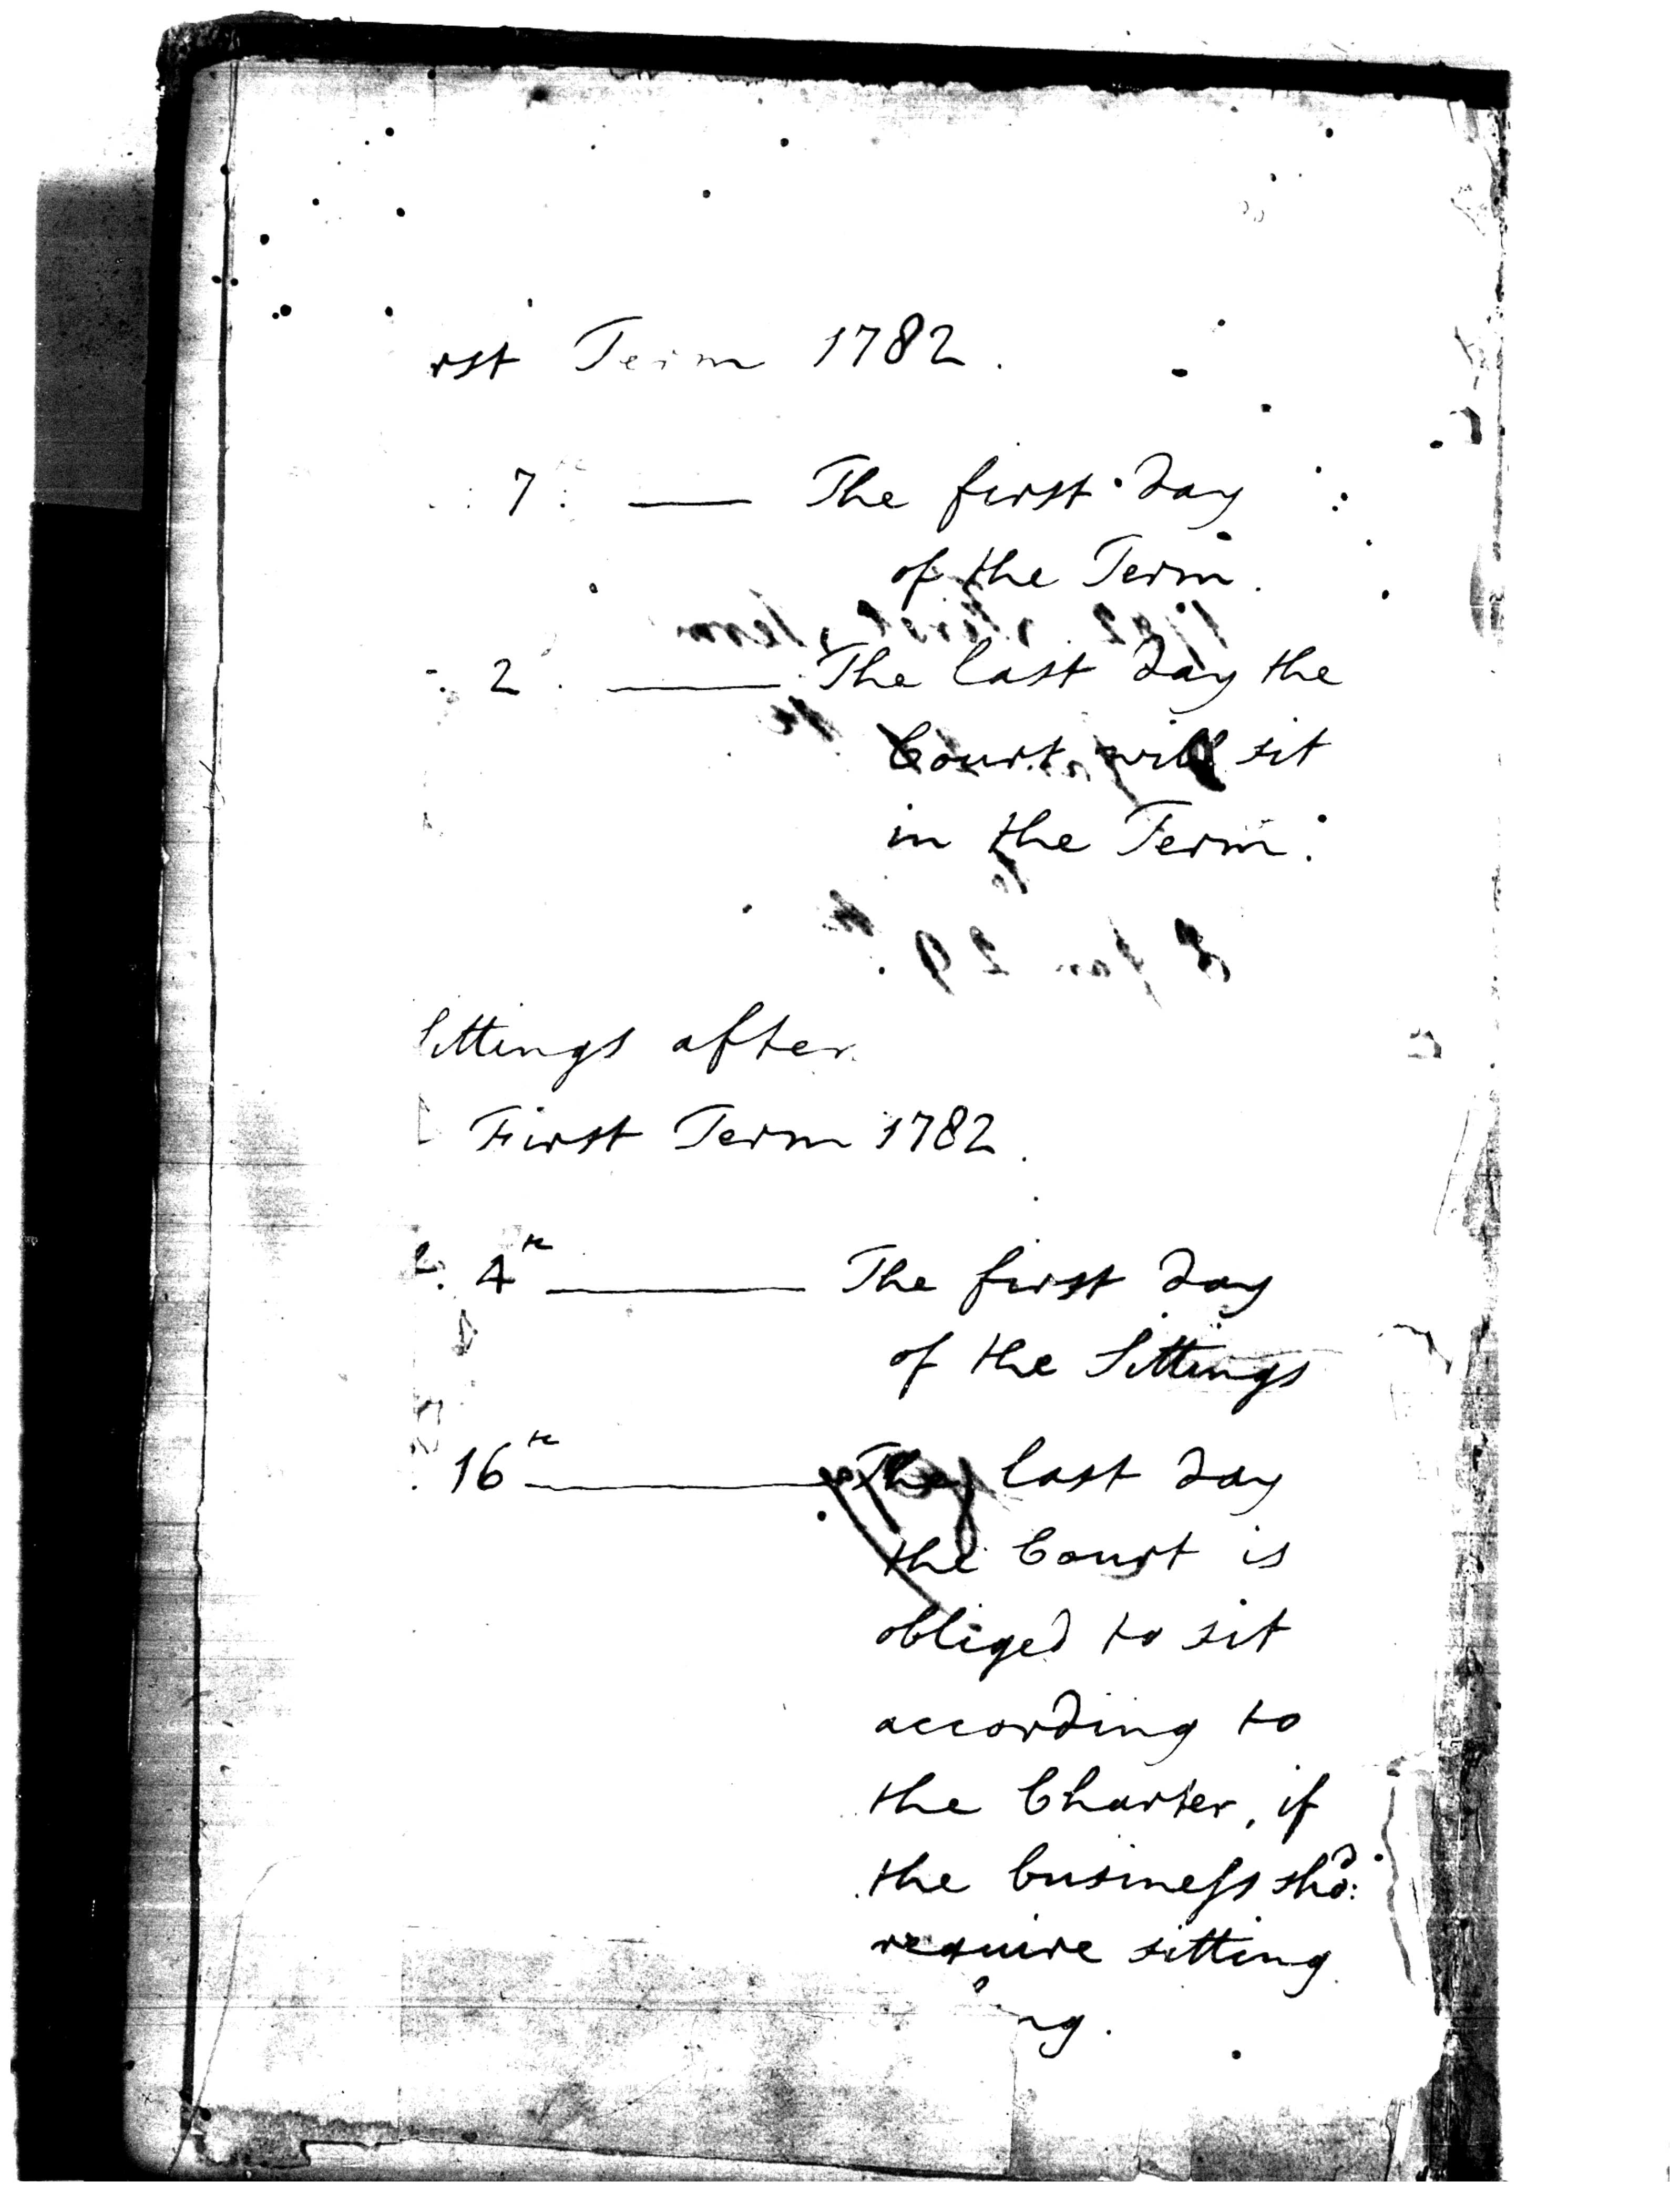 rst Term 1782.
7 — The first day
of the Term.
2 — The last day the
Court will sit
in the Term.
Sittings after
First Term 1782.
4th — The first day
of the Sittings
16th — The last day
the Court is
obliged to sit
according to
the Charter, if
the business shd:
require sitting
ng.